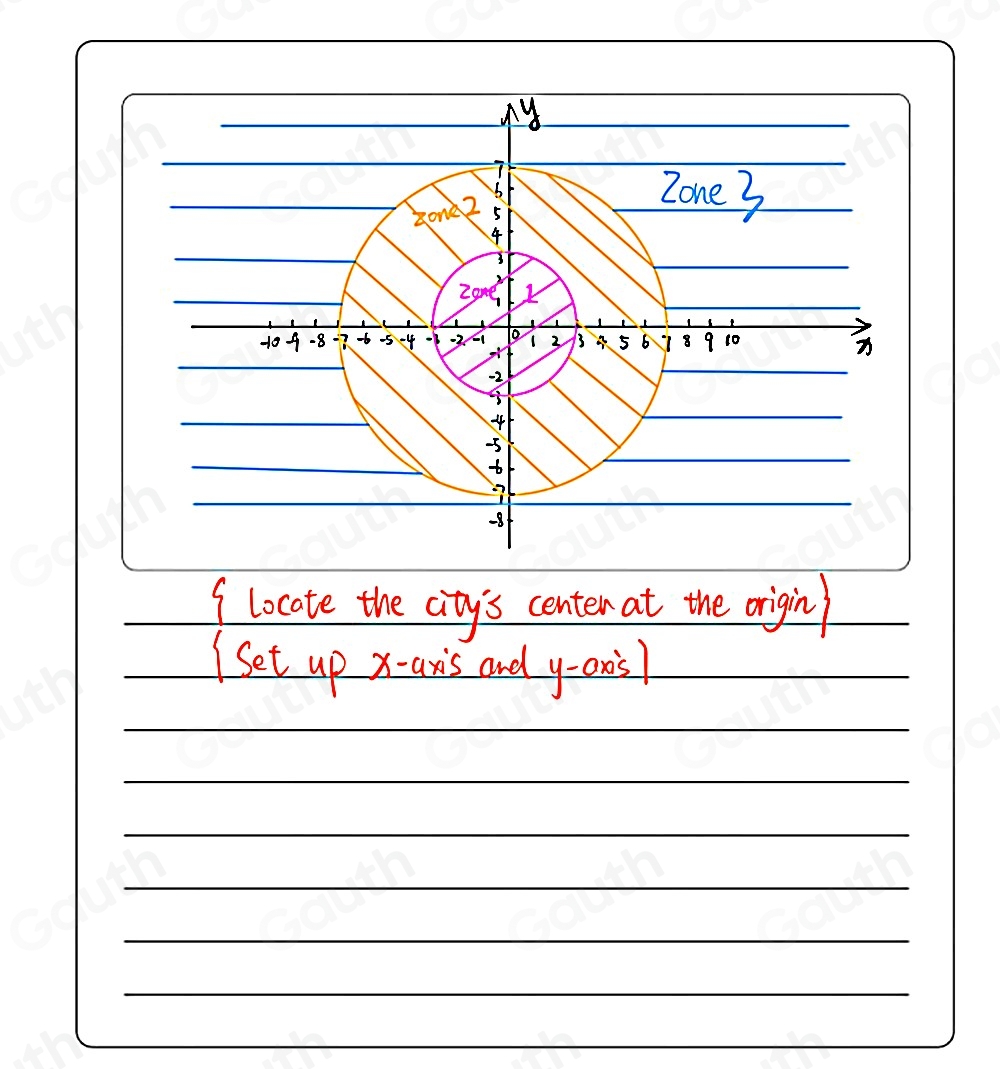 y
Zone 3
zone 2
Zone 1
7
6
5
4
3
2
1
-10 -9 -8 -7 -6 -5 -4 -3 -2 -1 0 1 2 3 4 5 6 7 8 9 10
x
-1
-2
-3
-4
-5
-6
-7
-8
{ Locate the city's center at the origin }
{ Set up x-axis and y-axis }
Gauth